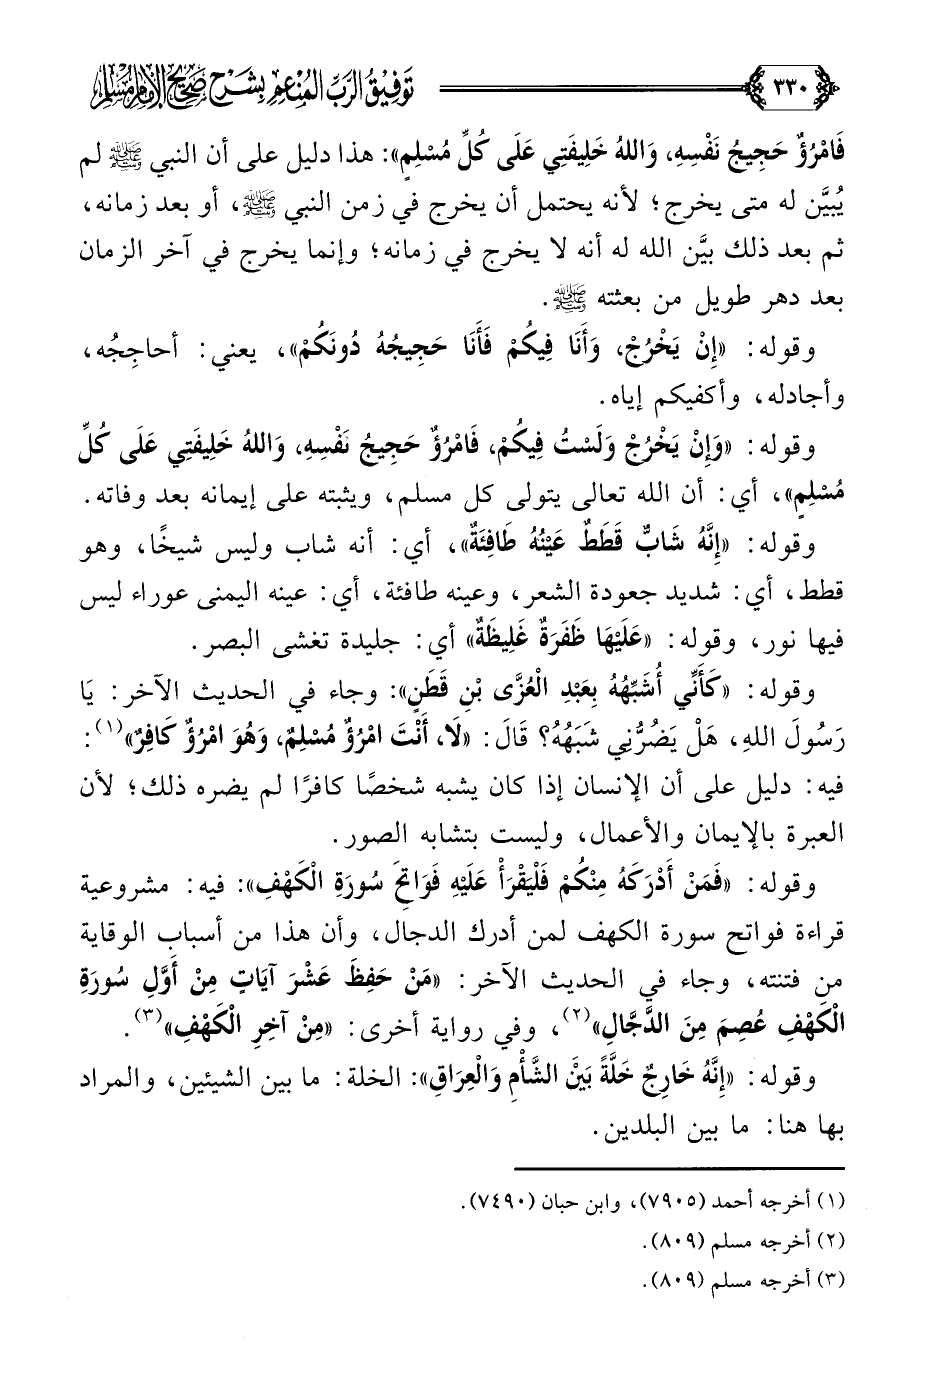 ٣٣٠
توفيق الرب المنعم بشرح صحيح الإمام مسلم
فَامْرُؤٌ حَجِيجُ نَفْسِهِ، وَاللهُ خَلِيفَتِي عَلَى كُلِّ مُسْلِمٍ»: هذا دليل على أن النبي ﷺ لم
يُبيَّن له متى يخرج؛ لأنه يحتمل أن يخرج في زمن النبي ﷺ، أو بعد زمانه،
ثم بعد ذلك بيَّن الله له أنه لا يخرج في زمانه؛ وإنما يخرج في آخر الزمان
بعد دهر طويل من بعثته ﷺ.
وقوله: «إِنْ يَخْرُجْ، وَأَنَا فِيكُمْ فَأَنَا حَجِيجُهُ دُونَكُمْ»، يعني: أحاججُه،
وأجادله، وأكفيكم إياه.
وقوله: «وَإِنْ يَخْرُجْ وَلَسْتُ فِيكُمْ، فَامْرُؤٌ حَجِيجُ نَفْسِهِ، وَاللهُ خَلِيفَتِي عَلَى كُلِّ
مُسْلِمٍ»، أي: أن الله تعالى يتولى كل مسلم، ويثبته على إيمانه بعد وفاته.
وقوله: «إِنَّهُ شَابٌّ قَطَطٌ عَيْنُهُ طَافِئَةٌ»، أي: أنه شاب وليس شيخًا، وهو
قطط، أي: شديد جعودة الشعر، وعينه طافئة، أي: عينه اليمنى عوراء ليس
فيها نور، وقوله: «عَلَيْهَا ظَفَرَةٌ غَلِيظَةٌ» أي: جليدة تغشى البصر.
وقوله: «كَأَنِّي أُشَبِّهُهُ بِعَبْدِ الْعُزَّى بْنِ قَطَنٍ»: وجاء في الحديث الآخر: يَا
رَسُولَ اللهِ، هَلْ يَضُرُّنِي شَبَهُهُ؟ قَالَ: «لَا، أَنْتَ امْرُؤٌ مُسْلِمٌ، وَهُوَ امْرُؤٌ كَافِرٌ»(١):
فيه: دليل على أن الإنسان إذا كان يشبه شخصًا كافرًا لم يضره ذلك؛ لأن
العبرة بالإيمان والأعمال، وليست بتشابه الصور.
وقوله: «فَمَنْ أَدْرَكَهُ مِنْكُمْ فَلْيَقْرَأْ عَلَيْهِ فَوَاتِحَ سُورَةِ الْكَهْفِ»: فيه: مشروعية
قراءة فواتح سورة الكهف لمن أدرك الدجال، وأن هذا من أسباب الوقاية
من فتنته، وجاء في الحديث الآخر: «مَنْ حَفِظَ عَشْرَ آيَاتٍ مِنْ أَوَّلِ سُورَةِ
الْكَهْفِ عُصِمَ مِنَ الدَّجَّالِ»(٢)، وفي رواية أخرى: «مِنْ آخِرِ الْكَهْفِ»(٣).
وقوله: «إِنَّهُ خَارِجٌ خَلَّةً بَيْنَ الشَّأْمِ وَالْعِرَاقِ»: الخلة: ما بين الشيئين، والمراد
بها هنا: ما بين البلدين.
(١) أخرجه أحمد (٧٩٠٥)، وابن حبان (٧٤٩٠).
(٢) أخرجه مسلم (٨٠٩).
(٣) أخرجه مسلم (٨٠٩).